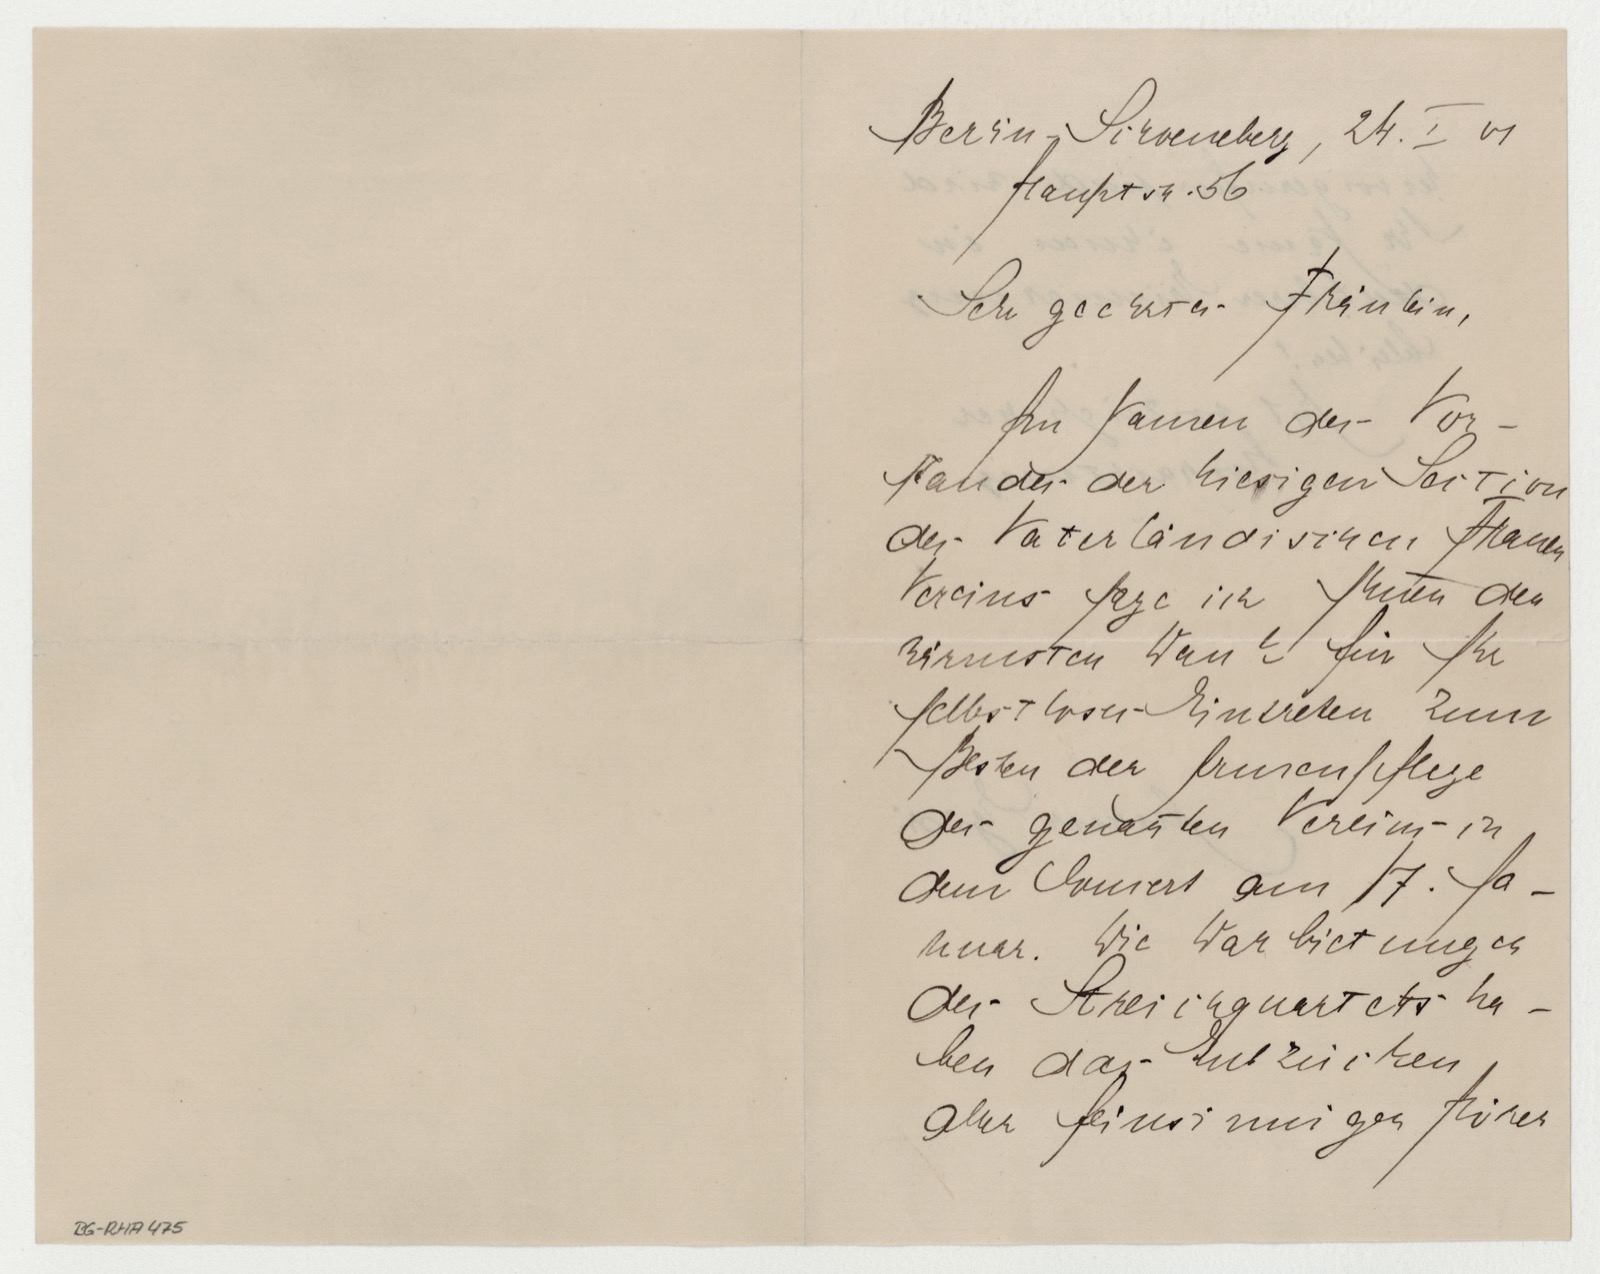 Berlin-Schoeneberg, 24. I 01
Hauptstr. 56
Sehr geehrtes Fräulein,
Im Namen des Vor-
standes der hiesigen Section
des Vaterländischen Frauen
Vereins sage ich Ihnen den
wärmsten Dank für Ihr
selbstloses Eintreten zum
Besten der Armenpflege
des genan̄ten Vereins in
dem Concert am 17. Ja-
nuar. Die Darbietungen
des Streichquartetts ha-
ben das Entzücken
aller feinsinnigen Hörer
BG-RHA 475